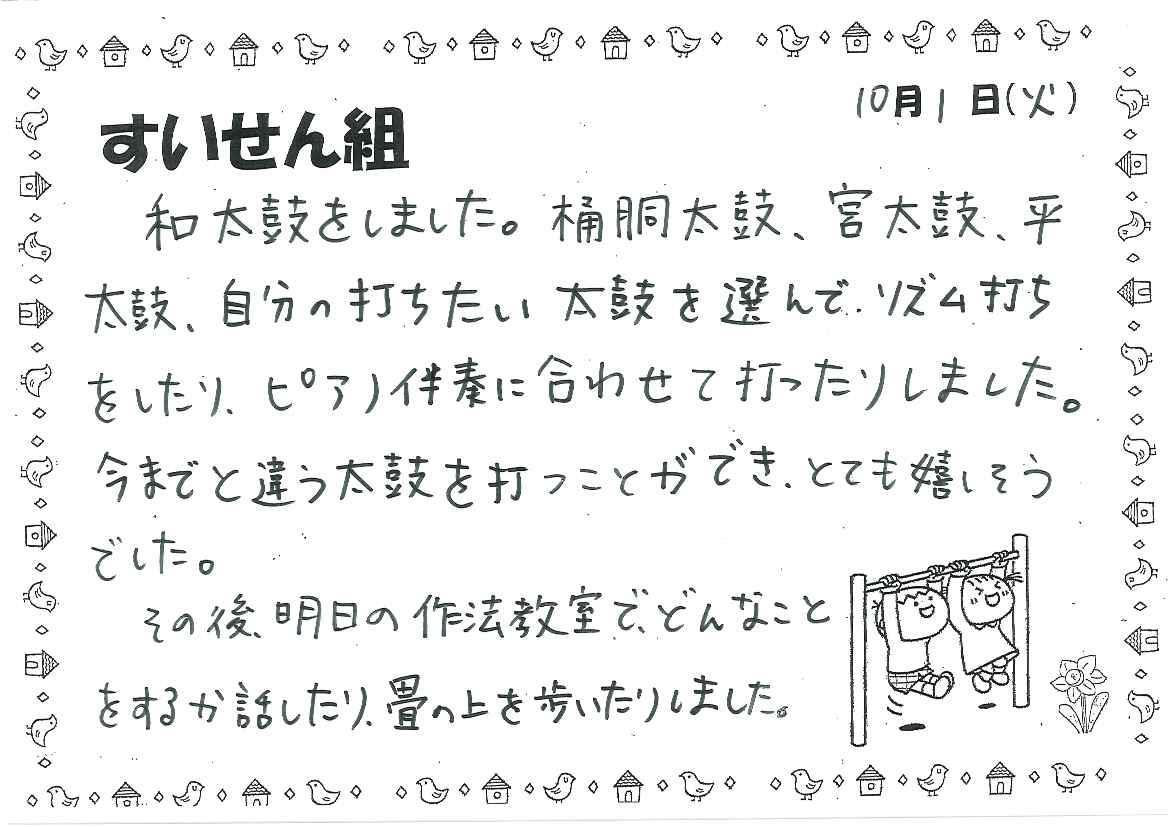 10月1日(火)
すいせん組
和太鼓をしました。桶胴太鼓、宮太鼓、平
太鼓、自分の打ちたい太鼓を選んで、リズム打ち
をしたり、ピアノ伴奏に合わせて打ったりしました。
今までと違う太鼓を打つことができ、とても嬉しそう
でした。
その後、明日の作法教室で、どんなこと
をするか話したり、畳の上を歩いたりしました。